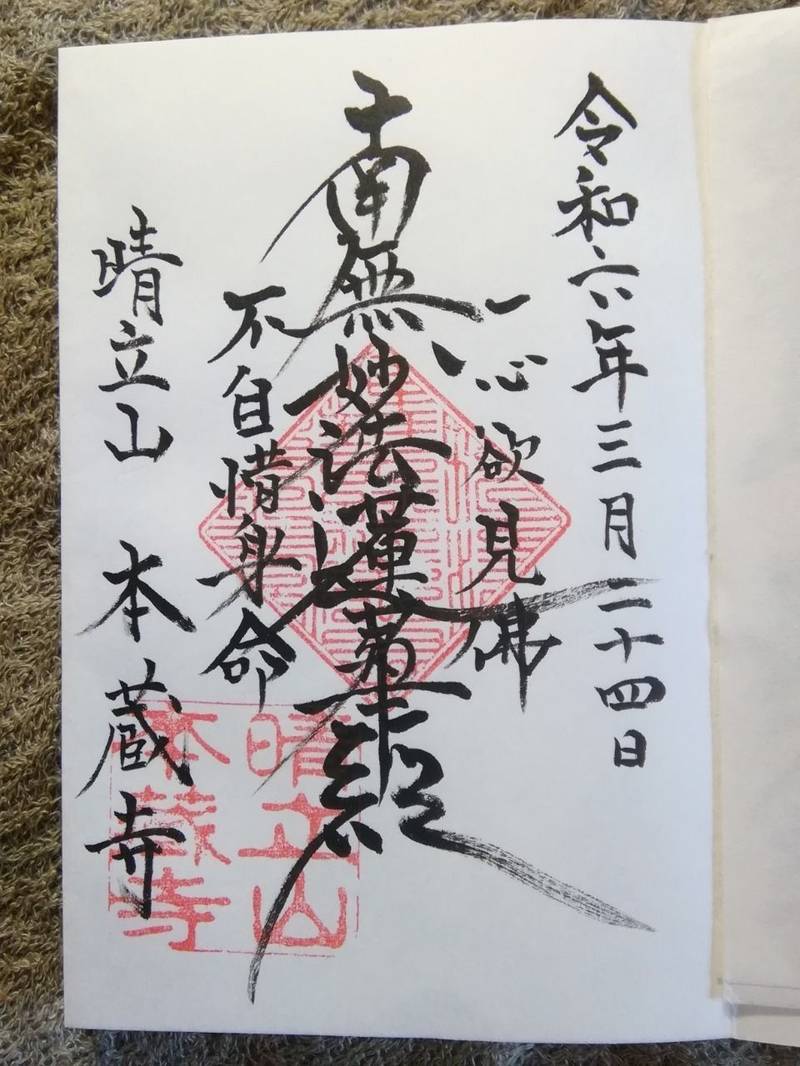 令和六年三月二十四日
一心欲見佛
南無妙法蓮華經
不自惜身命
晴立山 本蔵寺
晴立山
本蔵寺